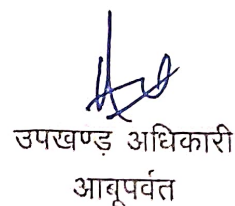 उपखण्ड़ अधिकारी
आबूपर्वत